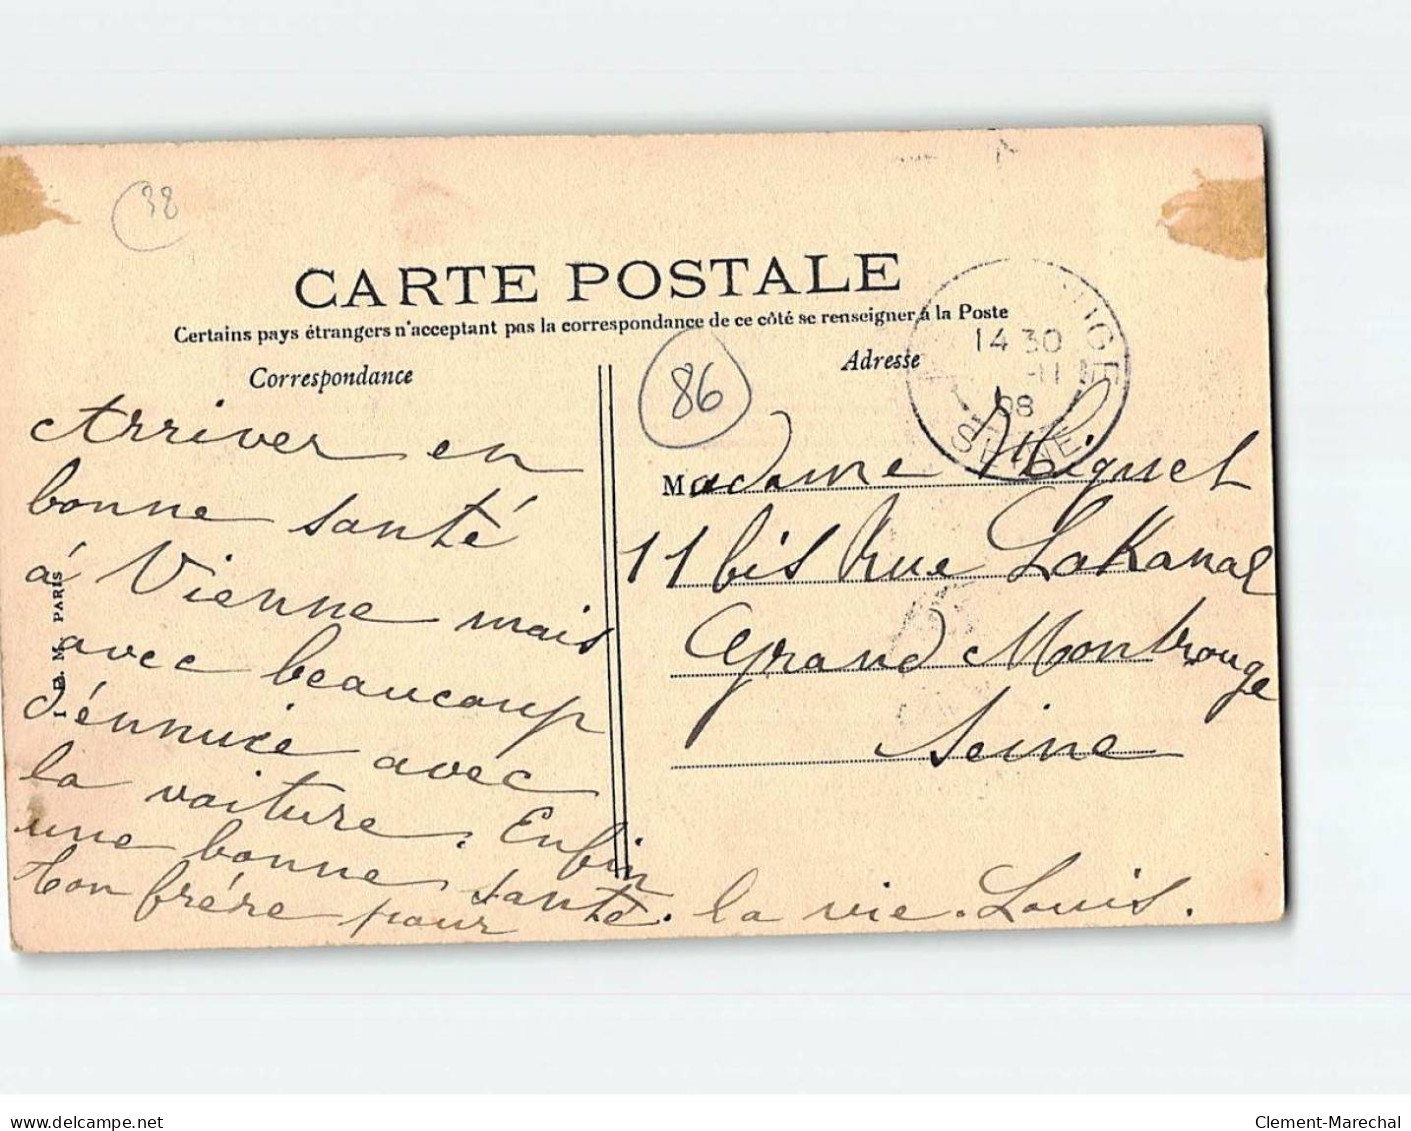 38
CARTE POSTALE
Certains pays étrangers n'acceptent pas la correspondance de ce côté se renseigner à la Poste
Correspondance
Adresse
86
14 30
-11
08
SEINE
Arriver en
bonne santé
à Vienne mais
avec beaucoup
d'énnuie avec
la voiture. Enfin
une bonne santé.
ton frére pour la vie. Louis.
Madame Miquel
11 bis Rue LaKanal
Grand Montrouge
Seine
E. M. PARIS
www.delcampe.net
Clement-Marechal